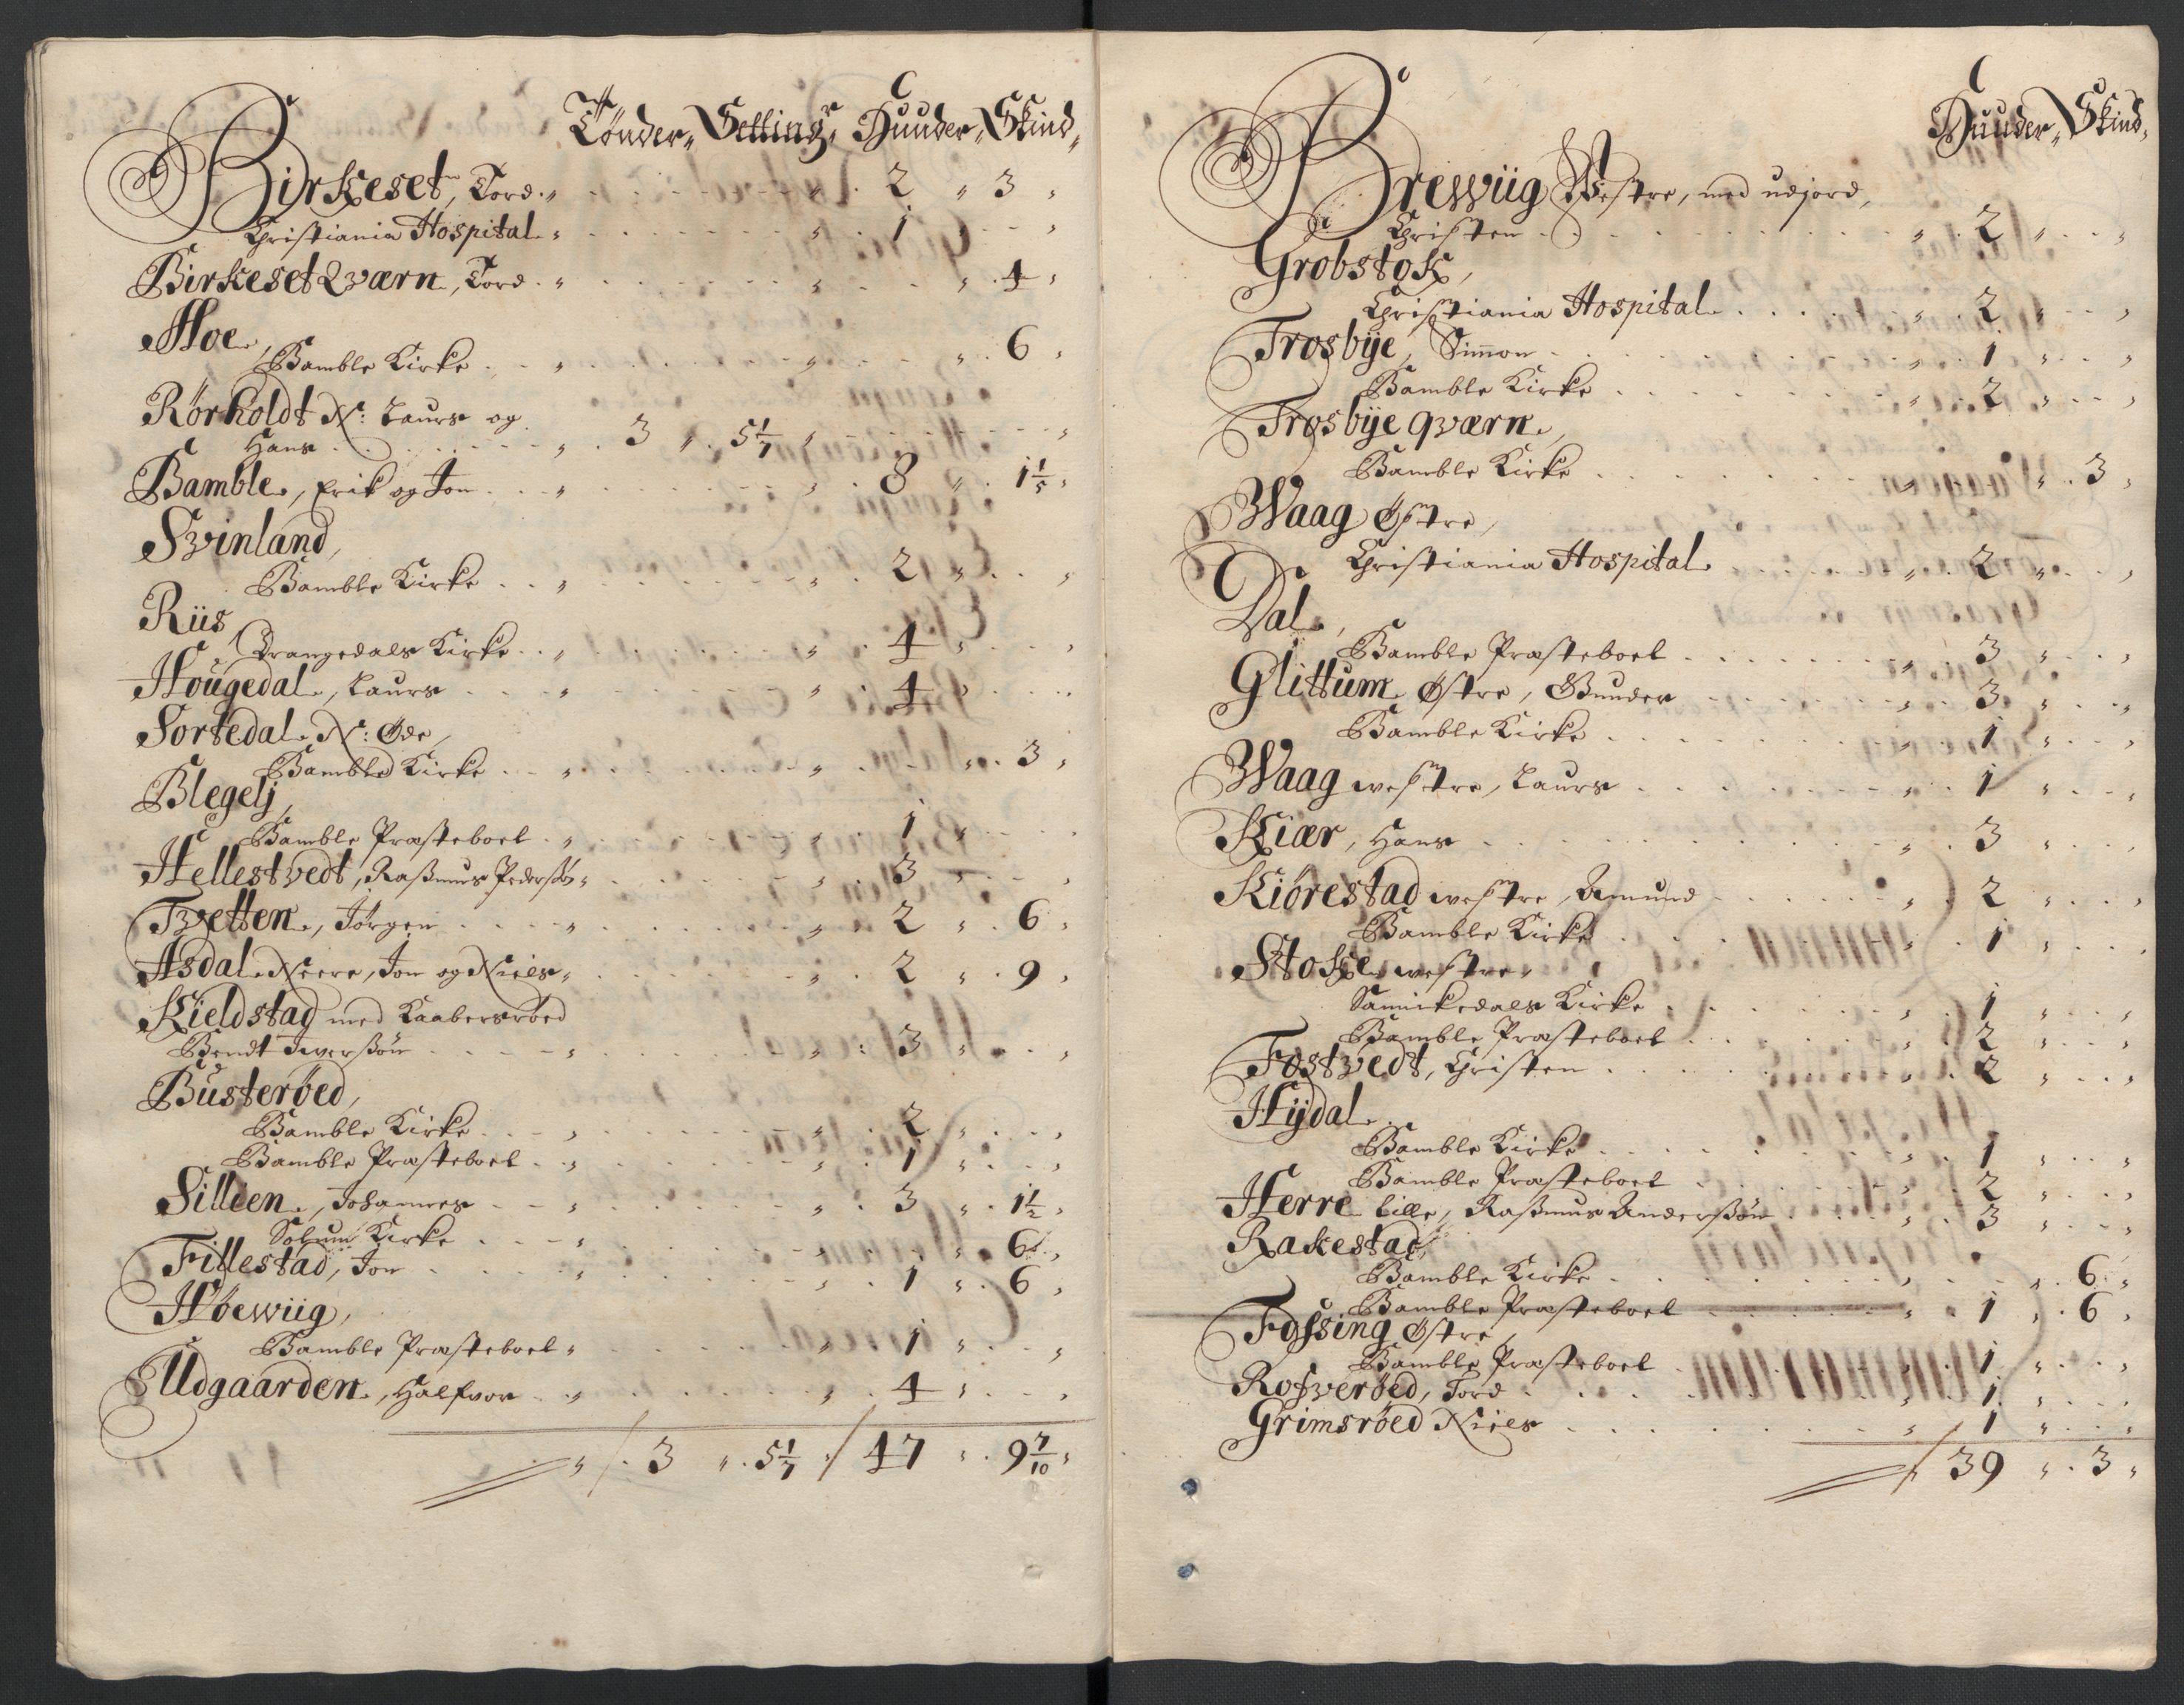 Tønder, Setting, Huuder, Skind,
Birkeset, Tord. 2 3
Christiania Hospital. 1
Birkeset Qværn, Tord. 4
Hoe,
Bamble Kirke 6
Rørholdt N: Laurs og
Hans 3 5 1/7
Bamble, Erik og Jon 8 1 1/5
Svinland,
Bamble Kirke 2
Riis,
Drangedals Kirke 4
Hougedal, Laurs 4
Sortedal N: Øde,
Bamble Kirke 3
Blegelj,
Bamble Præsteboel 1
Hellestvedt, Rasmus Pedersøn 3
Tvetten, Jørgen 2 6
Asdal Neere, Jon og Niels 2 9
Kieldstad med Kaabersrøed
Bendt Iverssøn 3
Busterøed,
Bamble Kirke 2
Bamble Præsteboel 1
Sillien, Johannes 3 1 1/2
Solum Kirke 6
Fillestad, Jon 1 6
Høewiig,
Bamble Præsteboel 1
Udgaarden, Halfvor 4
3 5 1/7 47 9 7/10
Huuder, Skind,
Brewiig Westre, med udjord,
Christen 2
Grobstok,
Christiania Hospital 2
Trosbÿe, Simon 1
Bamble Kirke 2
Trosbÿe qværn,
Bamble Kirke 3
Waag Østre,
Christiania Hospital 2
Dal,
Bamble Præsteboel 3
Glittum Østre, Gunder 3
Bamble Kirke 1
Waag westre, Laurs 1
Kiær, Hans 3
Kiørestad westre, Amund 2
Bamble Kirke 1
Stokke westre
Sannikedals Kirke 1
Bamble Præsteboel 2
Fostvedt, Christen 2
Hÿdal
Bamble Kirke 1
Bamble Præsteboel 2
Herre lille, Rasmus Anderssøn 3
Rakestad,
Bamble Kirke 6
Bamble Præsteboel 1 6
Fossing Østre,
Bamble Præsteboel 1
Rosverøed, Tord 1
Grimsrøed Niels 1
39 3